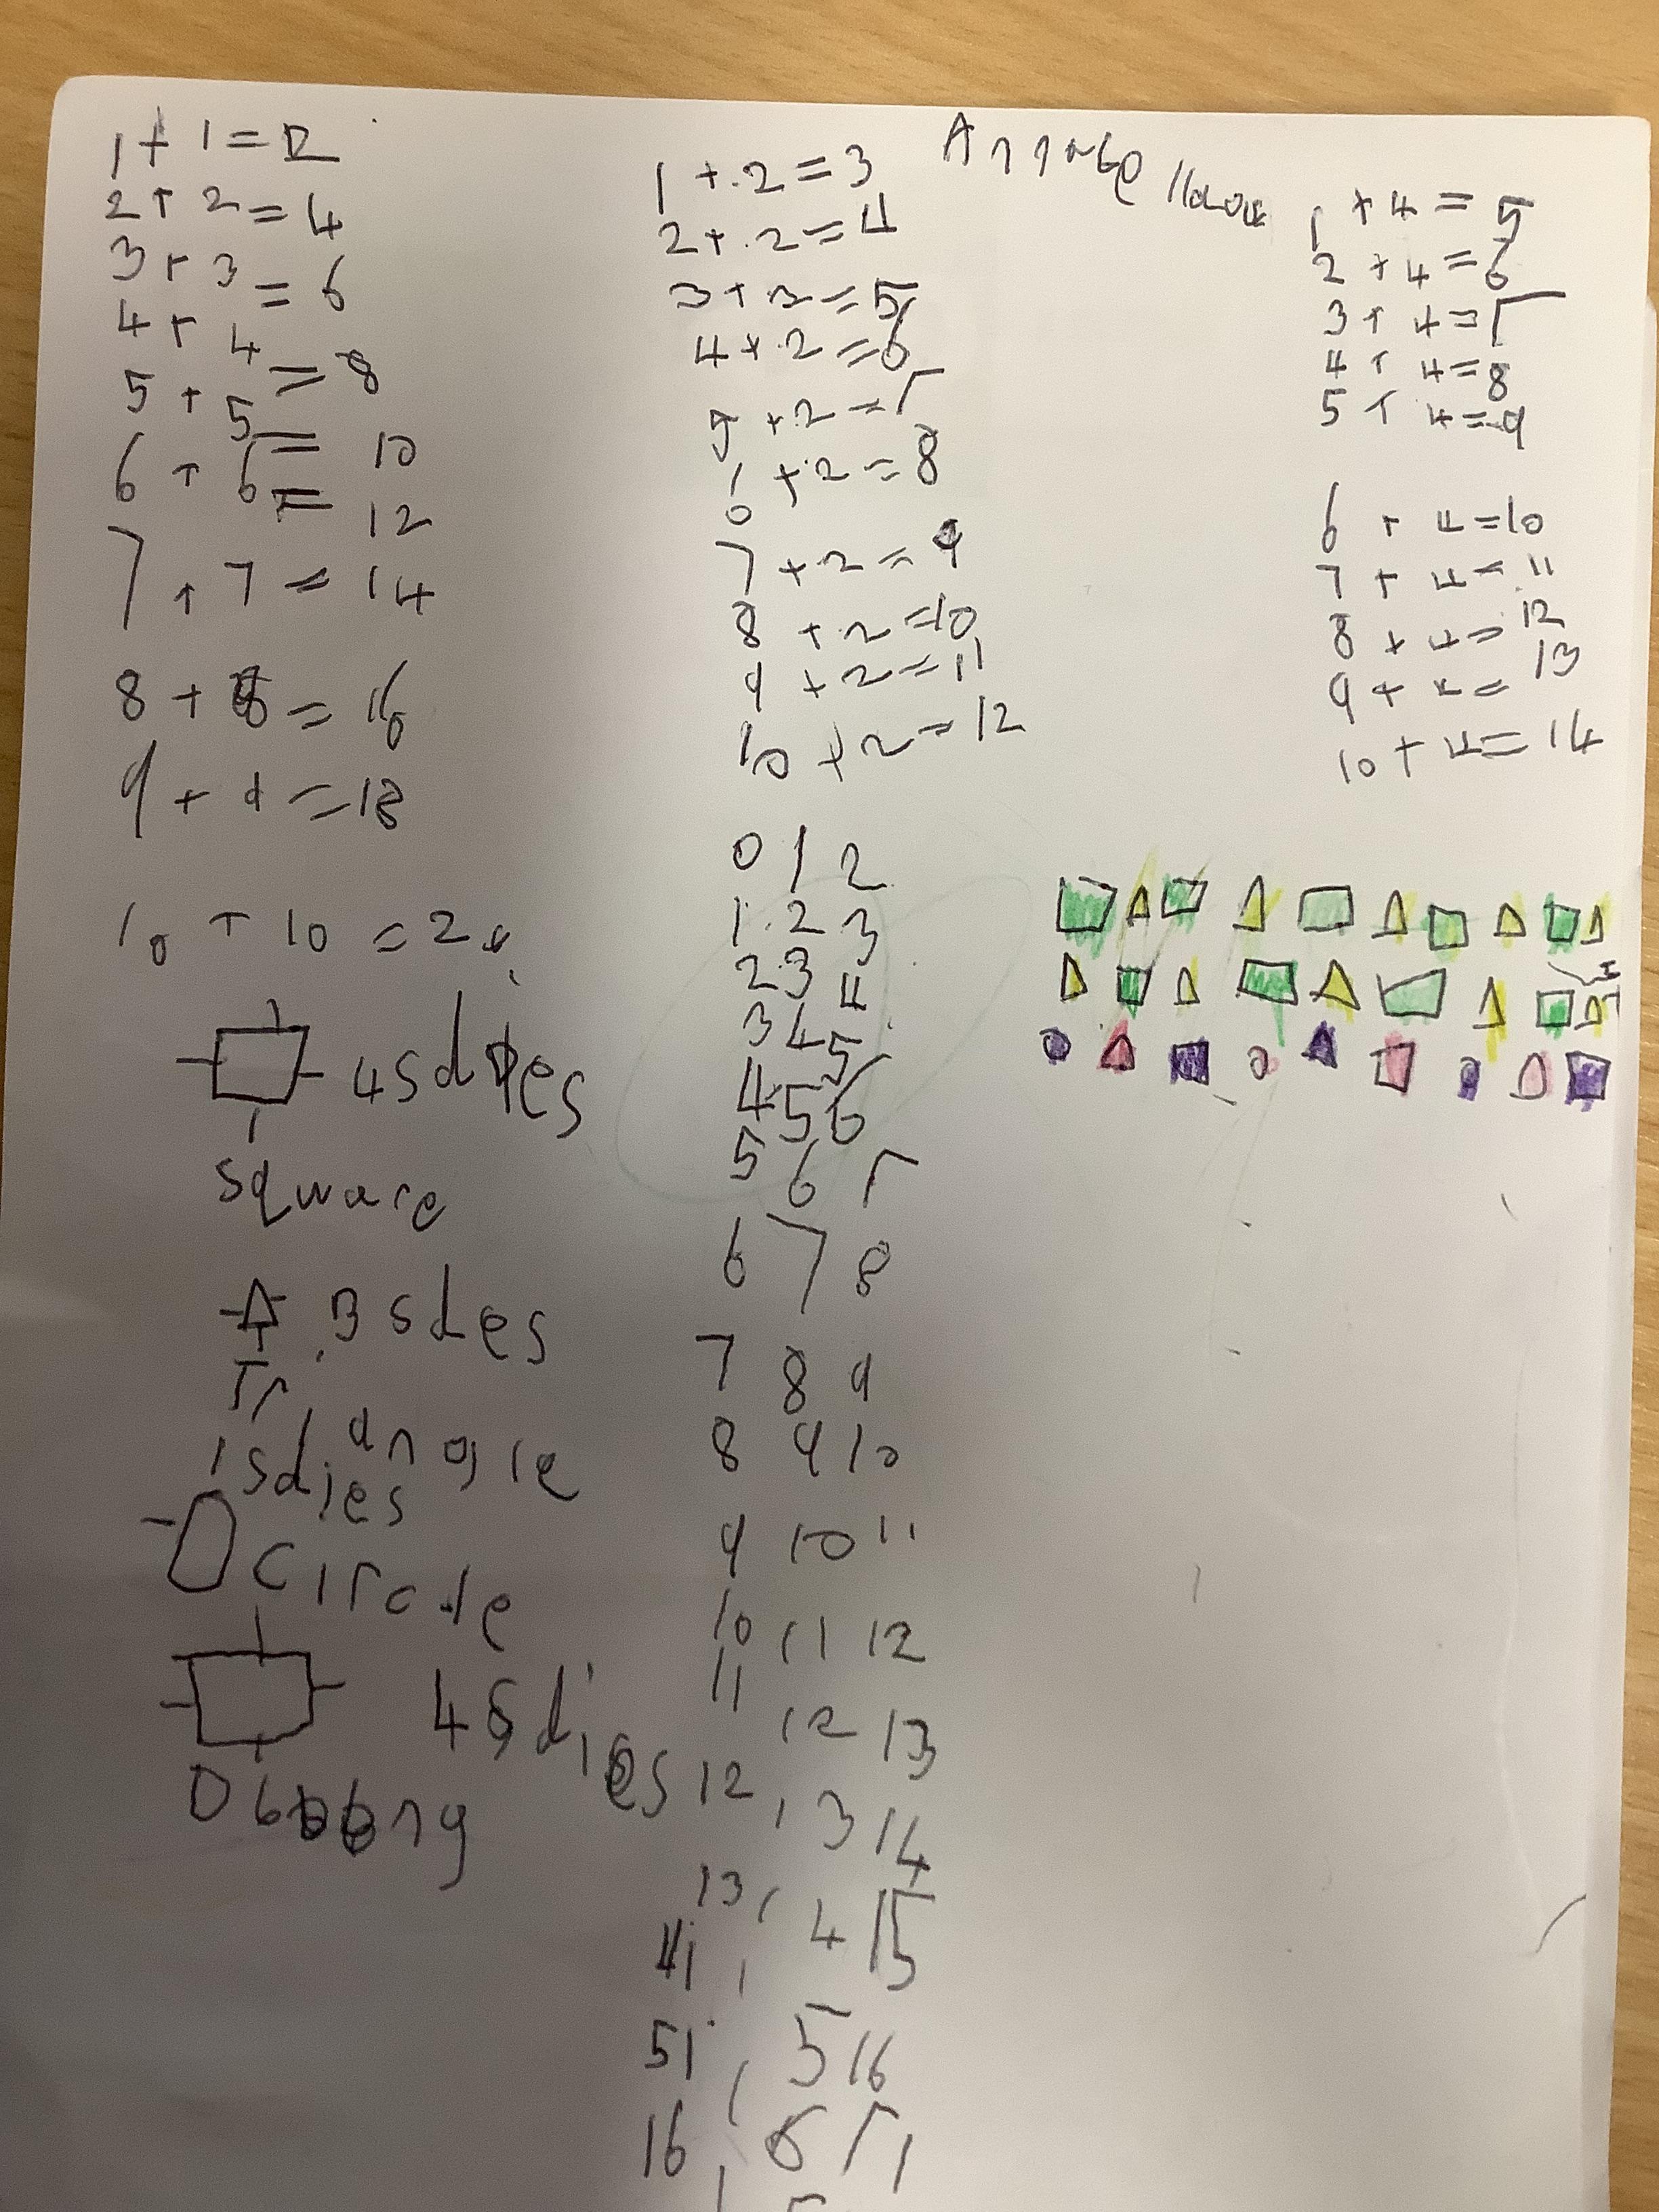 1 + 1 = 2
2 + 2 = 4
3 + 3 = 6
4 + 4 = 8
5 + 5 = 10
6 + 6 = 12
7 + 7 = 14
8 + 8 = 16
9 + 9 = 18
10 + 10 = 20
4 sdies
square
3 sdes
Triangle
1 sdies
circle
4 sdies
Obbong
1 + 2 = 3
2 + 2 = 4
3 + 2 = 5
4 + 2 = 6
5 + 2 = 7
6 + 2 = 8
7 + 2 = 9
8 + 2 = 10
9 + 2 = 11
10 + 2 = 12
0 1 2
1 2 3
2 3 4
3 4 5
4 5 6
5 6 7
6 7 8
7 8 9
8 9 10
9 10 11
10 11 12
11 12 13
12 13 14
13 14 15
41
51 5 16
16 6 71
1 + 4 = 5
2 + 4 = 6
3 + 4 = 7
4 + 4 = 8
5 + 4 = 9
6 + 4 = 10
7 + 4 = 11
8 + 4 = 12
9 + 4 = 13
10 + 4 = 14